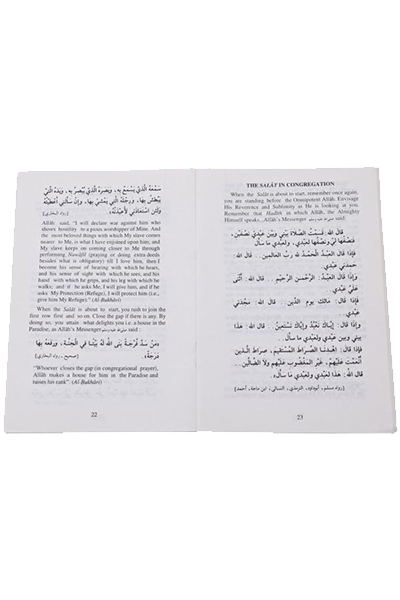 سَمْعَهُ الَّذِي يَسْمَعُ بِهِ، وَبَصَرَهُ الَّذِي يُبْصِرُ بِهِ، وَيَدَهُ الَّتِي
يَبْطِشُ بِهَا، وَرِجْلَهُ الَّتِي يَمْشِي بِهَا، وَإِنْ سَأَلَنِي أَعْطَيْتُهُ
وَلَئِنِ اسْتَعَاذَنِي لَأُعِيذَنَّهُ» [رواه البخاري]
Allâh said, "I will declare war against him who
shows hostility to a pious worshipper of Mine. And
the most beloved things with which My slave comes
nearer to Me, is what I have enjoined upon him; and
My slave keeps on coming closer to Me through
performing Nawâfil (praying or doing extra deeds
besides what is obligatory) till I love him, then I
become his sense of hearing with which he hears,
and his sense of sight with which he sees, and his
hand with which he grips, and his leg with which he
walks; and if he asks Me, I will give him, and if he
asks My Protection (Refuge), I will protect him (i.e.,
give him My Refuge)." (Al-Bukhâri)
When the Salât is about to start, you rush to join the
first row first and so on. Close the gap if there is any. By
doing so, you attain what delights you i.e. a house in the
Paradise, as Allâh's Messenger ﷺ said:
«مَنْ سَدَّ فُرْجَةً بَنَى اللهُ لَهُ بَيْتًا فِي الْجَنَّةِ، وَرَفَعَهُ بِهَا
دَرَجَةً» [صحيح، رواه البخاري]
"Whoever closes the gap (in congregational prayer),
Allâh makes a house for him in the Paradise and
raises his rank". (Al-Bukhâri)
22
THE SALÂT IN CONGREGATION
When the Salât is about to start, remember once again,
you are standing before the Omnipotent Allâh. Envisage
His Reverence and Sublimity as He is looking at you.
Remember that Hadith in which Allâh, the Almighty
Himself speaks. Allâh's Messenger ﷺ said:
قال الله: قَسَمْتُ الصَّلاةَ بَيْنِي وَبَيْنَ عَبْدِي نِصْفَيْنِ،
فَنِصْفُهَا لِي وَنِصْفُهَا لِعَبْدِي، وَلِعَبْدِي مَا سَأَلَ
فإذا قال: الْعَبْدُ الْحَمْدُ لله رَبِّ العالمين. قال الله:
حمدني عَبْدِي
وَإِذَا قَالَ: الرَّحْمٰنِ الرَّحِيْمِ. قال الله: أثنى
عَلَيَّ عَبْدِي
فَإِذَا قَالَ: مالك يوم الدِّين. قال الله: مَجَّدَنِي
عَبْدِي
وإِذَا قَالَ: إِيَّاكَ نَعْبُدُ وَإِيَّاكَ نَسْتَعِينُ. قال الله: هذا
بَيْنِي وبين عَبْدِي ولعبدي ما سَأَلَ.
فَإِذَا قال: اهْدِنَا الصِّرَاطَ الْمُسْتَقِيمَ. صِرَاطَ الَّذِينَ
أَنْعَمْتَ عَلَيْهِمْ، غَيْرِ الْمَغْضُوبِ عَلَيْهِمْ وَلَا الضَّالِّينَ..
قال الله: هَذَا لِعَبْدِي وَلِعَبْدِي مَا سَأَلَ.
[رواه مسلم، أبوداود، الترمذي، النسائي، ابن ماجة، أحمد]
23